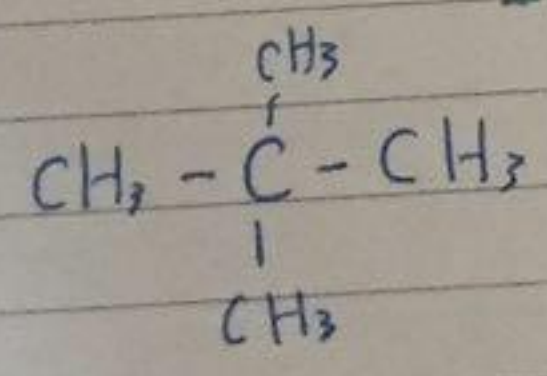 CH3
CH3 - C - CH3
|
CH3